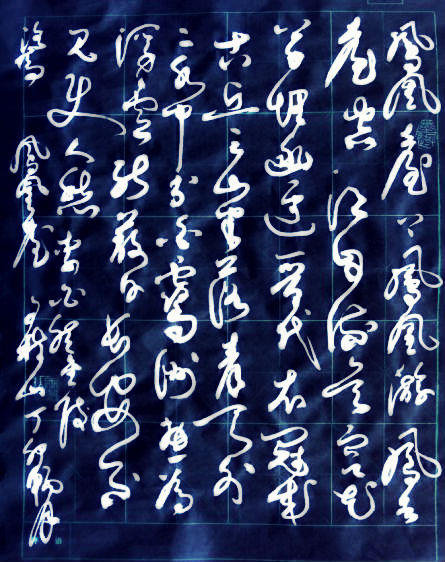 鳳凰臺上鳳凰游鳳去
臺空江自流吳宮花
草埋幽徑晉代衣冠成
古丘三山半落青天外
二水中分白鷺洲總為
浮雲能蔽日長安不
見使人愁李白登金陵
鳳凰臺 山丁酉 月